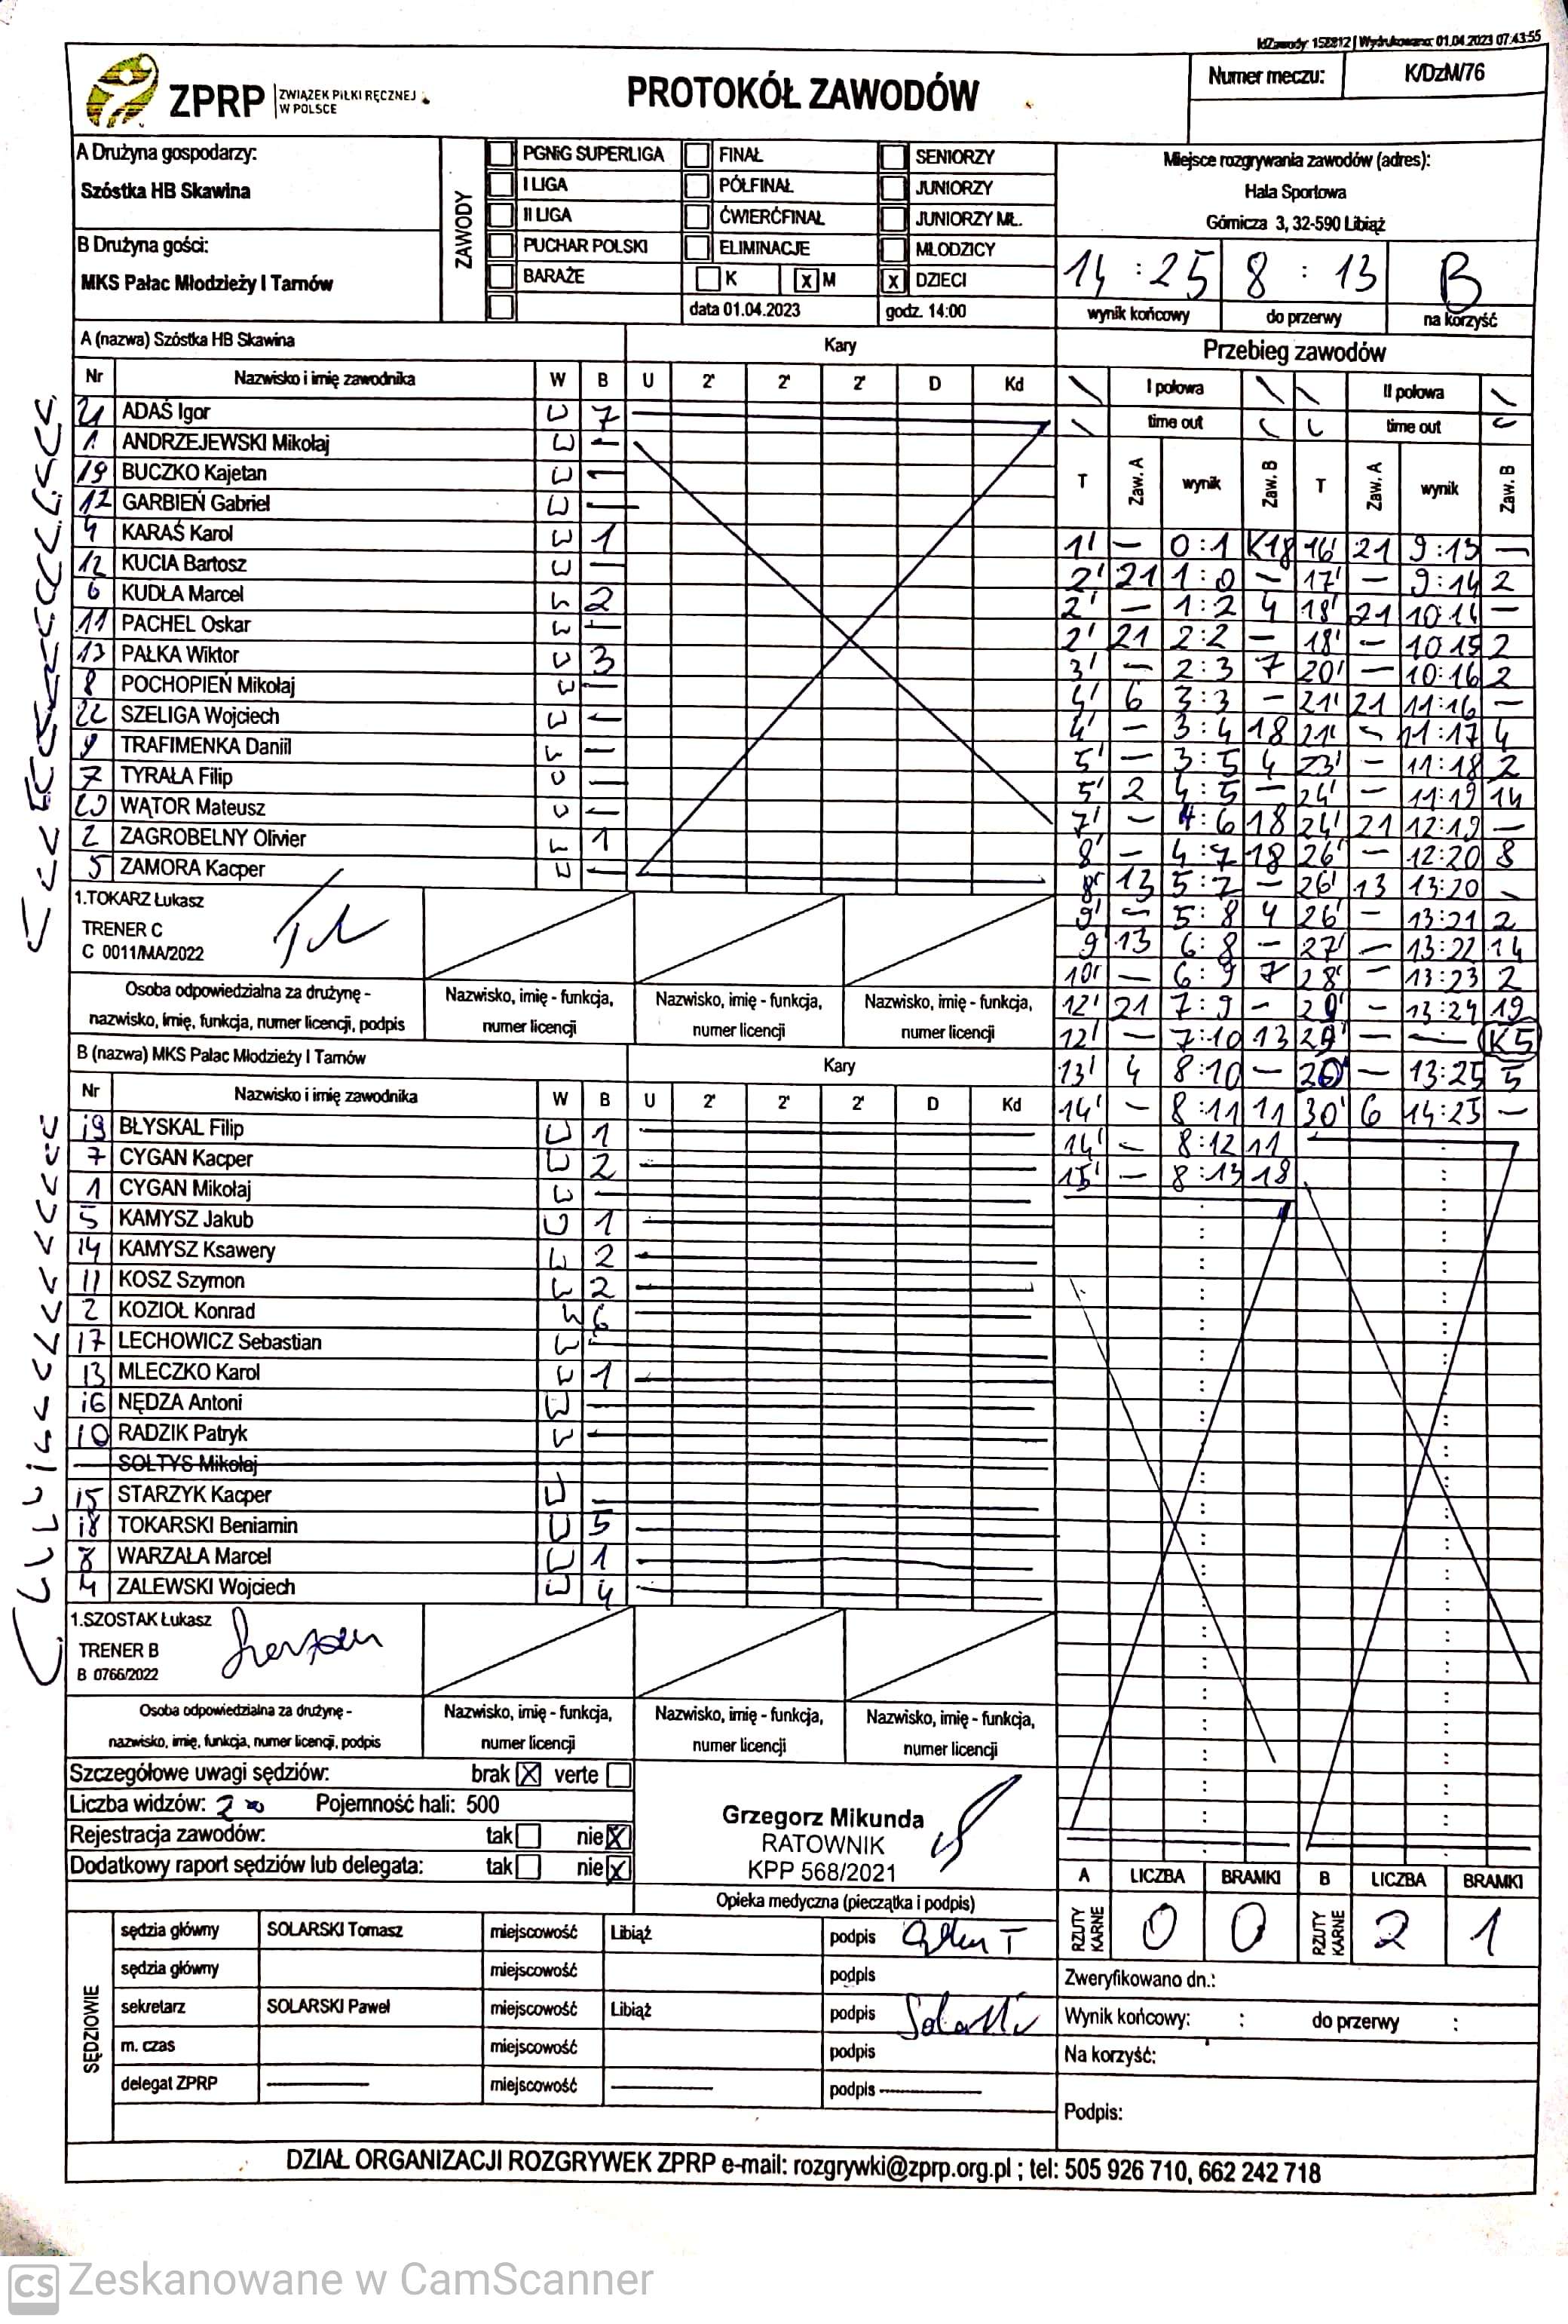 IdZawody: 158812 | Wydrukowano: 01.04.2023 07:43:55
ZPRP ZWIĄZEK PIŁKI RĘCZNEJ W POLSCE
PROTOKÓŁ ZAWODÓW
Numer meczu: K/DzM/76
A Drużyna gospodarzy:
Szóstka HB Skawina
B Drużyna gości:
MKS Pałac Młodzieży I Tarnów
ZAWODY
PGNiG SUPERLIGA FINAŁ SENIORZY
I LIGA PÓŁFINAŁ JUNIORZY
II LIGA ĆWIERĆFINAŁ JUNIORZY MŁ.
PUCHAR POLSKI ELIMINACJE MŁODZICY
BARAŻE K x M x DZIECI
data 01.04.2023 godz. 14:00
Miejsce rozgrywania zawodów (adres):
Hala Sportowa
Górnicza 3, 32-590 Libiąż
14 : 25 8 : 13 B
wynik końcowy do przerwy na korzyść
A (nazwa) Szóstka HB Skawina Kary
Nr Nazwisko i imię zawodnika W B U 2' 2' 2' D Kd
21 ADAŚ Igor W 7
1 ANDRZEJEWSKI Mikołaj W —
19 BUCZKO Kajetan W —
17 GARBIEŃ Gabriel W —
4 KARAŚ Karol W 1
12 KUCIA Bartosz W —
6 KUDŁA Marcel W 2
11 PACHEL Oskar W —
13 PAŁKA Wiktor W 3
8 POCHOPIEŃ Mikołaj W —
22 SZELIGA Wojciech W —
9 TRAFIMENKA Daniil W —
7 TYRAŁA Filip W —
20 WĄTOR Mateusz W —
2 ZAGROBELNY Olivier W 1
5 ZAMORA Kacper W —
1.TOKARZ Łukasz
TRENER C
C 0011/MA/2022
Osoba odpowiedzialna za drużynę - nazwisko, imię, funkcja, numer licencji, podpis
Nazwisko, imię - funkcja, numer licencji
Nazwisko, imię - funkcja, numer licencji
Nazwisko, imię - funkcja, numer licencji
B (nazwa) MKS Pałac Młodzieży I Tarnów Kary
Nr Nazwisko i imię zawodnika W B U 2' 2' 2' D Kd
19 BŁYSKAL Filip W 1
7 CYGAN Kacper W 2
1 CYGAN Mikołaj W —
5 KAMYSZ Jakub W 1
14 KAMYSZ Ksawery W 2
11 KOSZ Szymon W 2
2 KOZIOŁ Konrad W 6
17 LECHOWICZ Sebastian W —
13 MLECZKO Karol W 1
16 NĘDZA Antoni W —
10 RADZIK Patryk W —
SOŁTYS Mikołaj
15 STARZYK Kacper W —
18 TOKARSKI Beniamin W 5
8 WARZAŁA Marcel W 1
4 ZALEWSKI Wojciech W 4
1.SZOSTAK Łukasz
TRENER B
B 0766/2022
Osoba odpowiedzialna za drużynę - nazwisko, imię, funkcja, numer licencji, podpis
Nazwisko, imię - funkcja, numer licencji
Nazwisko, imię - funkcja, numer licencji
Nazwisko, imię - funkcja, numer licencji
Przebieg zawodów
I połowa II połowa
time out time out
T Zaw. A wynik Zaw. B T Zaw. A wynik Zaw. B
1' — 0:1 K18 16' 21 9:13 —
2' 21 1:0 — 17' — 9:14 2
2' — 1:2 4 18' 21 10:14 —
2' 21 2:2 — 18' — 10:15 2
3' — 2:3 7 20' — 10:16 2
4' 6 3:3 — 21' 21 11:16 —
4' — 3:4 18 21' — 11:17 4
5' — 3:5 4 23' — 11:18 2
5' 2 4:5 — 24' — 11:19 14
7' — 4:6 18 24' 21 12:19 —
8' — 4:7 18 26' — 12:20 8
8' 13 5:7 — 26' 13 13:20 —
9' — 5:8 4 26' — 13:21 2
9' 13 6:8 — 27' — 13:22 14
10' — 6:9 7 28' — 13:23 2
12' 21 7:9 — 29' — 13:24 19
12' — 7:10 13 29' — — K5
13' 4 8:10 — — 13:25 5
14' — 8:11 11 30' 6 14:25 —
14' — 8:12 11
15' — 8:13 18
Szczegółowe uwagi sędziów: brak X verte
Liczba widzów: Pojemność hali: 500
Rejestracja zawodów: tak nie X
Dodatkowy raport sędziów lub delegata: tak nie X
Grzegorz Mikunda
RATOWNIK
KPP 568/2021
Opieka medyczna (pieczątka i podpis)
A LICZBA BRAMKI B LICZBA BRAMKI
RZUTY KARNE 0 0 RZUTY KARNE 2 1
SĘDZIOWIE
sędzia główny SOLARSKI Tomasz miejscowość Libiąż podpis
sędzia główny miejscowość podpis
sekretarz SOLARSKI Paweł miejscowość Libiąż podpis
m. czas miejscowość podpis
delegat ZPRP — miejscowość — podpis —
Zweryfikowano dn.:
Wynik końcowy: : do przerwy :
Na korzyść:
Podpis:
DZIAŁ ORGANIZACJI ROZGRYWEK ZPRP e-mail: rozgrywki@zprp.org.pl ; tel: 505 926 710, 662 242 718
CS Zeskanowane w CamScanner